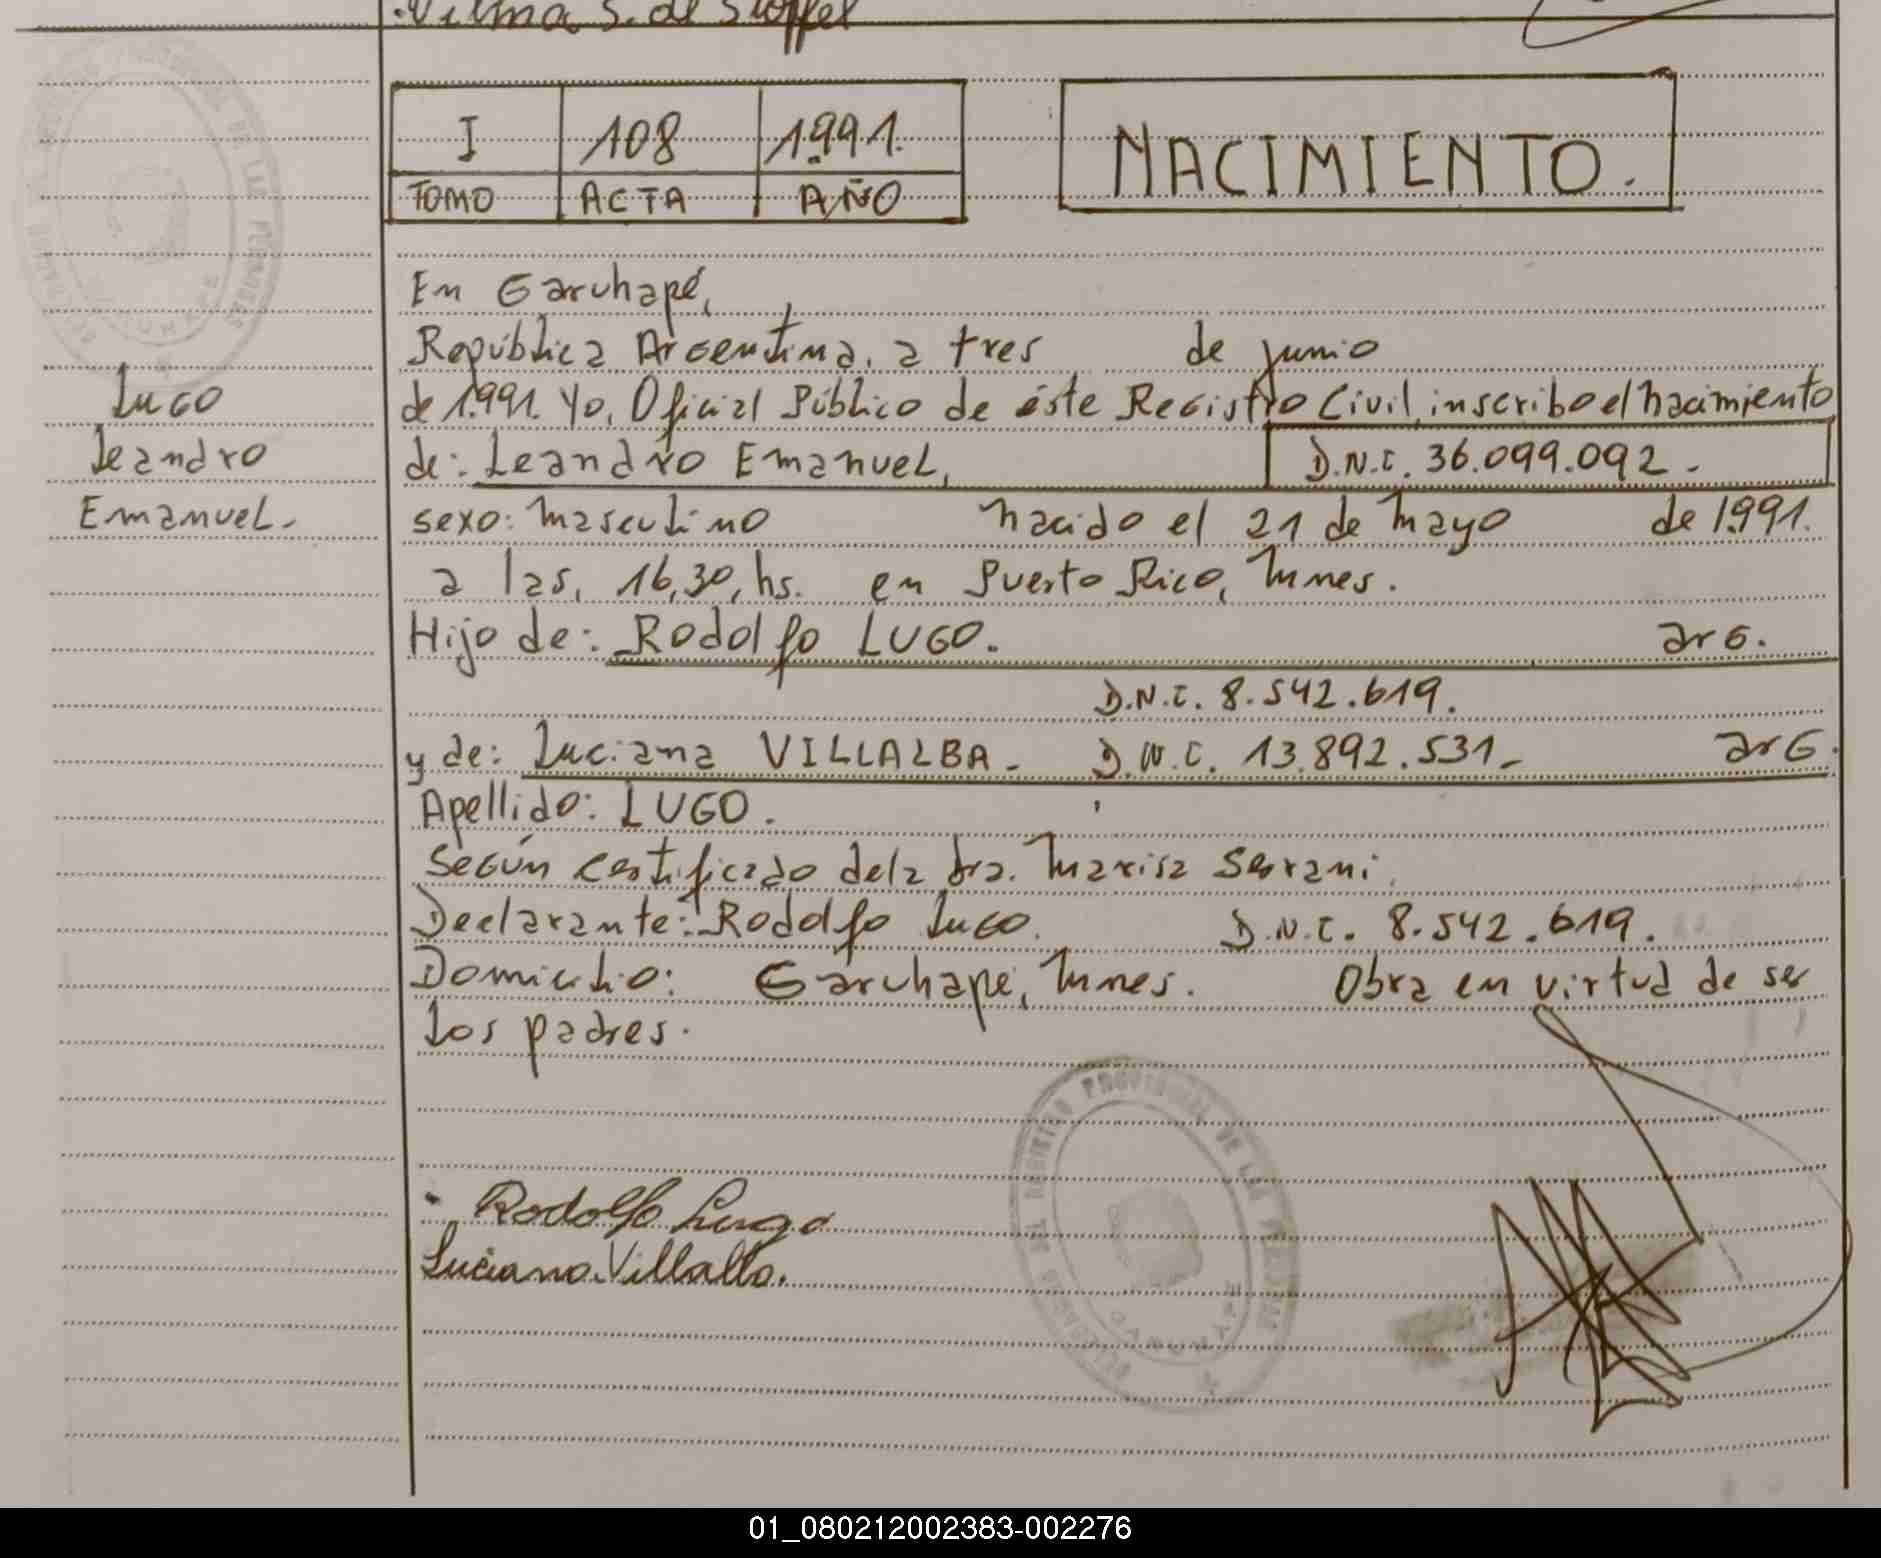 Vilma S. de Stoppel
I 108 1991.
TOMO ACTA AÑO
NACIMIENTO.
En Garuhapé,
República Argentina, a tres de junio
de 1.991. Yo, Oficial Público de éste Registro Civil, inscribo el nacimiento
Lugo
Leandro
Emanuel.
de: Leandro Emanuel, D.N.I. 36.099.092.-
sexo: masculino nacido el 21 de mayo de 1991.
a las, 16,30, hs. en Puerto Rico, Mnes.
Hijo de: Rodolfo LUGO. arG.
D.N.I. 8.542.619.
y de: Luciana VILLALBA - D.N.I. 13.892.531.- arG.
Apellido: LUGO.
Según certificado de la dra. Marisa Serrani.
Declarante: Rodolfo Lugo. D.N.I. 8.542.619.
Domicilio: Garuhapé, Mnes. Obra en virtud de ser
los padres.
Rodolfo Lugo
Luciana Villalba.
01_080212002383-002276